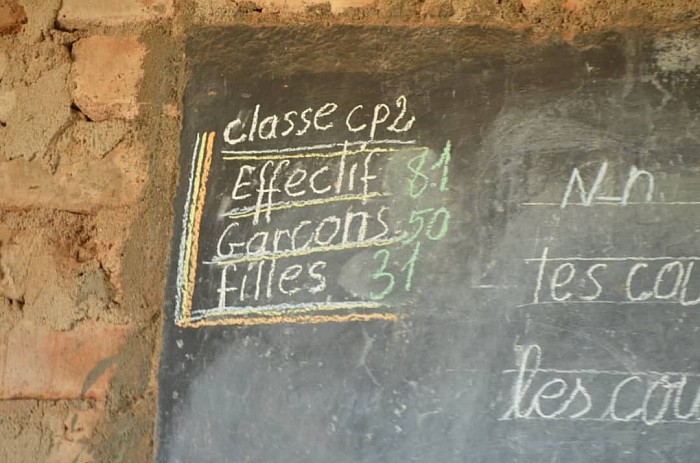 classe CP2
Effectif 81
Garçons 50
filles 31
N_n
les cou
les cou